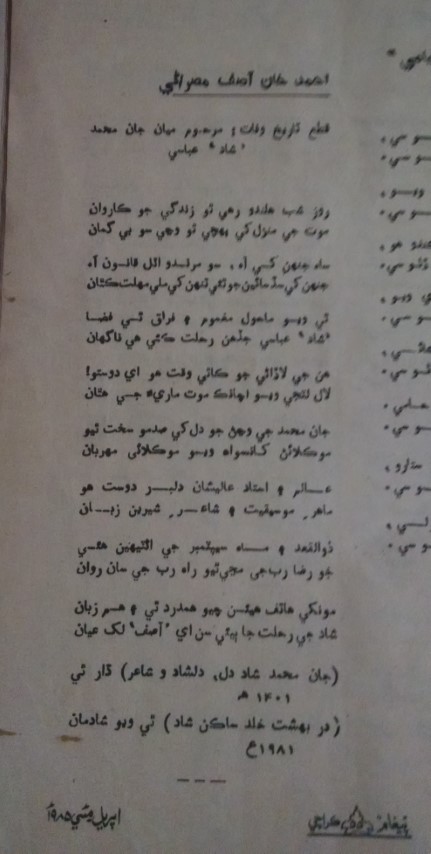 احمد خان آصف مصراڻي
قطع تاريخ وفات: مرحوم ميان جان محمد
”شاد“ عباسي
روز شب هلندو رهي ٿو زندگي جو ڪاروان
موت جي منزل کي پهچي ٿو وڃي سو بي گمان
ساه جنهن کي آه، سو مرندو اٽل قانون آه
جنهن کي سڏ سائين جو ٿئي تنهن کي ملي مهلت ڪٿان
ٿي ويو ماحول مغموم ۾ فراق ٿي فضا
”شاد“ عباسي جڏهن رحلت ڪئي هي ناگهان
هن جي لاڏاڻي جو ڪاٿي وقت هو اي دوستو!
لال لٽجي ويو اچانڪ موت ماريءَ جي هٿان
جان محمد جي وڃڻ جو دل کي صدمو سخت ٿيو
موڪلائڻ کانسواءِ ويو موڪلائي مهربان
عالم ۾ استاد عاليشان دلبر دوست هو
ماهرِ موسيقيت ۾ شاعرِ شيرين زبان
ذوالقعد ۾ ماه سيپٽمبر جي اڻٽيهين هئي
جو رضا رب جي مڃي ٿيو راه رب جي سان روان
مونکي هاتف هيئن چيو همدرد ٿي ۾ هم زبان
شاد جي رحلت جا ٻيئي سن اي ”آصف“ لک عيان
(جان محمد شاد دل، دلشاد و شاعر) ڌار ٿي
۱۴۰۱ هه
(در بهشت خلد ساڪن شاد) ٿي ويو شادمان
۱۹۸۱ع
اپريل ۱۹۸۵
پيغام ڪراچي